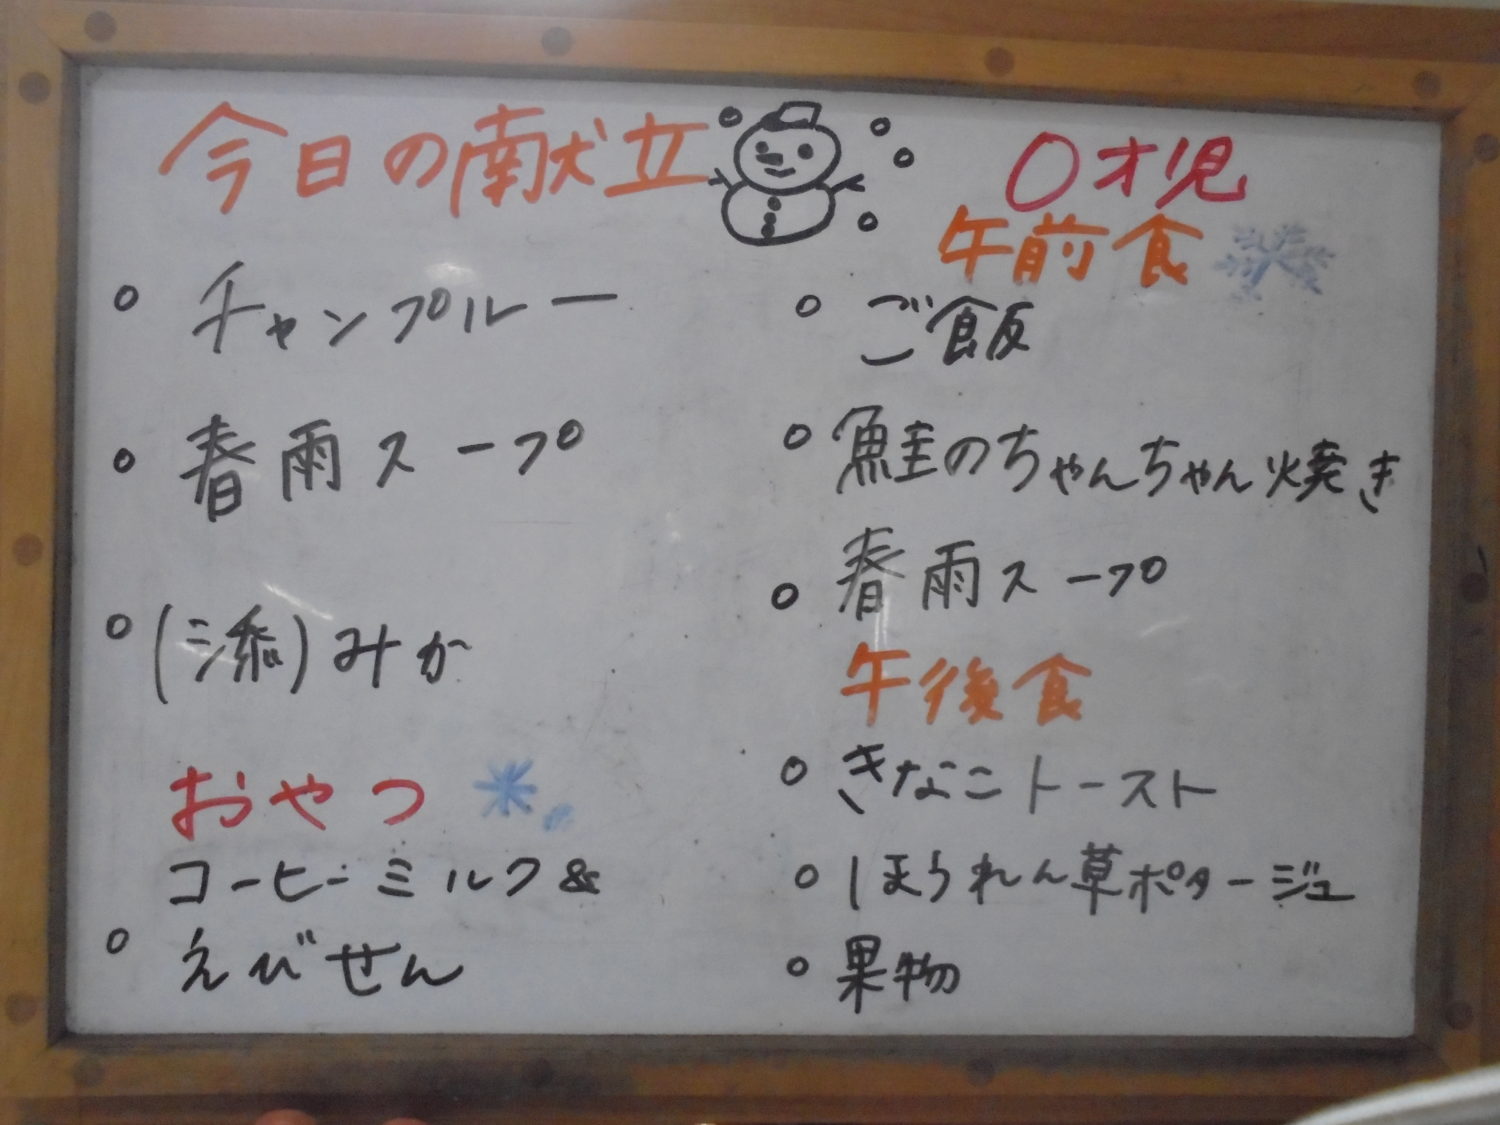 今日の献立
○ チャンプルー
○ 春雨スープ
○ (添)みか
おやつ
コーヒーミルク&
○ えびせん
0才児
午前食
○ ご飯
○ 鮭のちゃんちゃん焼き
○ 春雨スープ
午後食
○ きなこトースト
○ ほうれん草ポタージュ
○ 果物